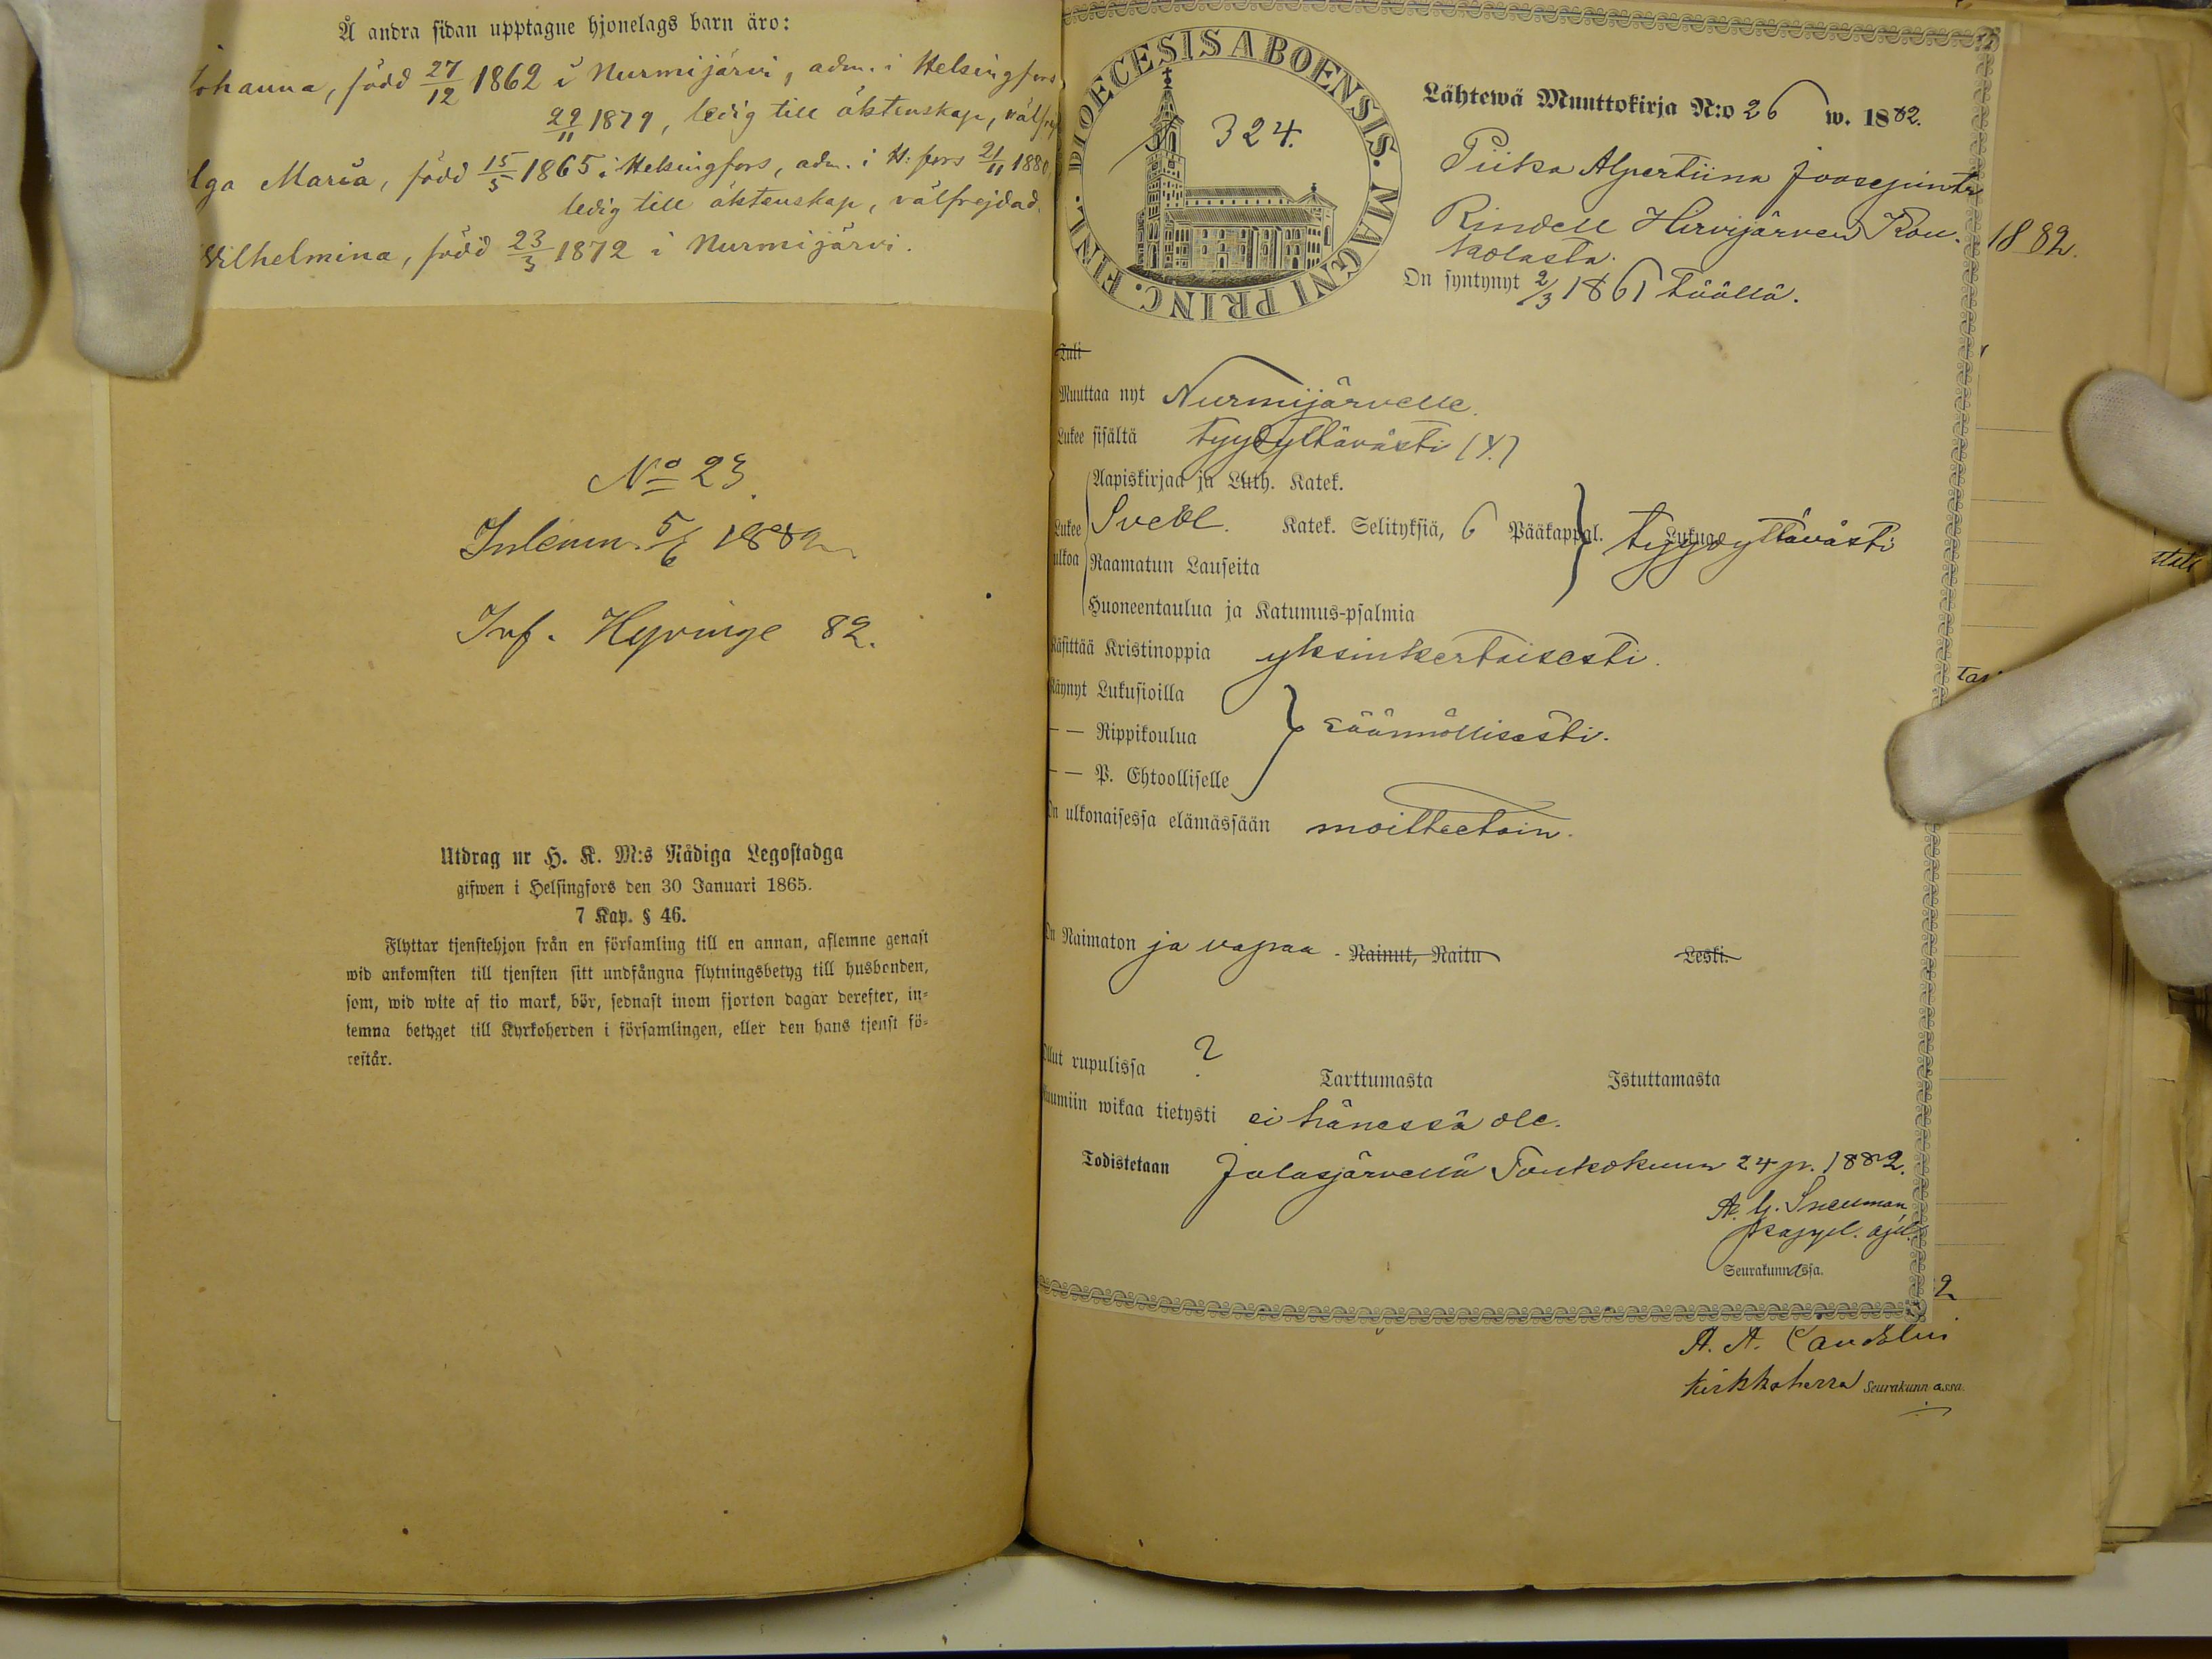 Å andra sidan upptagne hjonelags barn äro:
Johanna, född 27/12 1862 i Nurmijärvi, adm. i Helsingfors
29/11 1879, ledig till äktenskap, välfrej
lga Maria, född 15/5 1865 i Helsingfors, adm. i H:fors 21/11 1880,
ledig till äktenskap, välfrejdad.
Vilhelmina, född 23/3 1872 i Nurmijärvi.
No 23.
Inlemn. 5/6 1882
Inf. Hyvinge 82.
Utdrag ur H. K. M:s Nådiga Legostadga
gifwen i Helsingfors den 30 Januari 1865.
7 Kap. § 46.
Flyttar tjenstehjon från en församling till en annan, aflemne genast
wid ankomsten till tjensten sitt undfångna flytningsbetyg till husbonden,
som, wid wite af tio mark, bör, sednast inom fjorton dagar derefter, in-
lemna betyget till Kyrkoherden i församlingen, eller den hans tjenst fö-
restår.
DIOECESIS ABOENSIS. MAGNI PRINC. FINL.
324.
Lähtewä Muuttokirja N:o 26 w. 1882.
Piika Alpertiina Joosepintr
Rindell Hirvijärven Kou-
kolasta.
1882.
On syntynyt 2/3 1861 täällä.
Tuli
Muuttaa nyt Nurmijärvelle.
Lukee sisältä tyydyttävästi (4.)
Aapiskirjaa ja Luth. Katek.
Lukee ulkoa Svebl. Katek. Selityksiä, 6 Pääkappal. Lukua tyydyttävästi
Raamatun Lauseita
Huoneentaulua ja Katumus-psalmia
Käsittää Kristinoppia yksinkertaisesti.
Käynyt Lukusioilla
— — Rippikoulua säännöllisesti.
— — P. Ehtoolliselle
On ulkonaisessa elämässään moitteetoin.
On Naimaton ja vapaa. Nainut, Naitu Leski.
Ollut rupulissa ? Tarttumasta Istuttamasta
Ruumiin wikaa tietysti ei hänessä ole.
Todistetaan Jalasjärvellä Toukokuun 24 p. 1882.
A. G. Snellman
kappel. apul.
Seurakunnassa.
2
A. A.
Kirkkoherra Seurakunnassa.